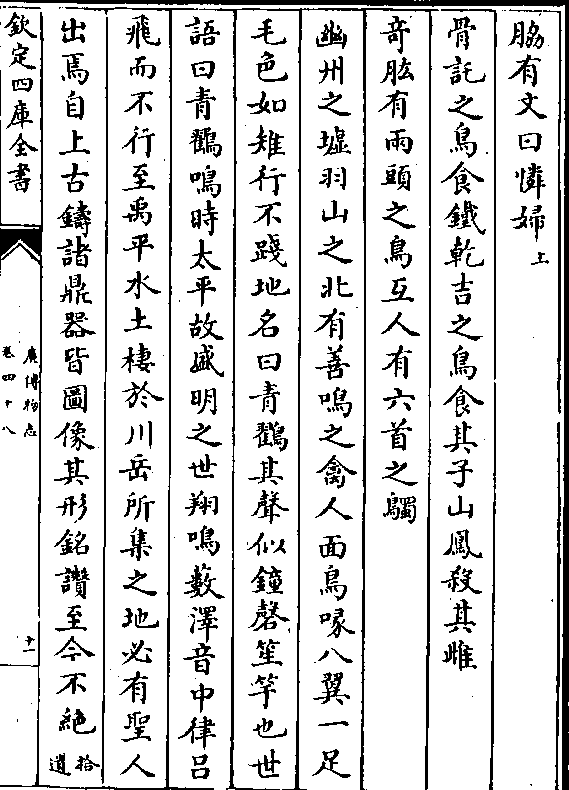 脇有文曰憐婦上
骨託之鳥食鐵乾吉之鳥食其子山鳳殺其雌
竒肱有兩頭之鳥互人有六首之䴆
幽州之墟羽山之北有善鳴之禽人面鳥喙八翼一足
毛色如雉行不踐地名曰青鸖其聲似鐘磬笙竽也世
語曰青鸖鳴時太平故盛明之世翔鳴藪澤音中律吕
飛而不行至禹平水土棲於川岳所集之地必有聖人
出焉自上古鑄諸鼎器皆圖像其形銘讚至今不絶拾遺
欽定四庫全書
廣博物志
卷四十八
十一